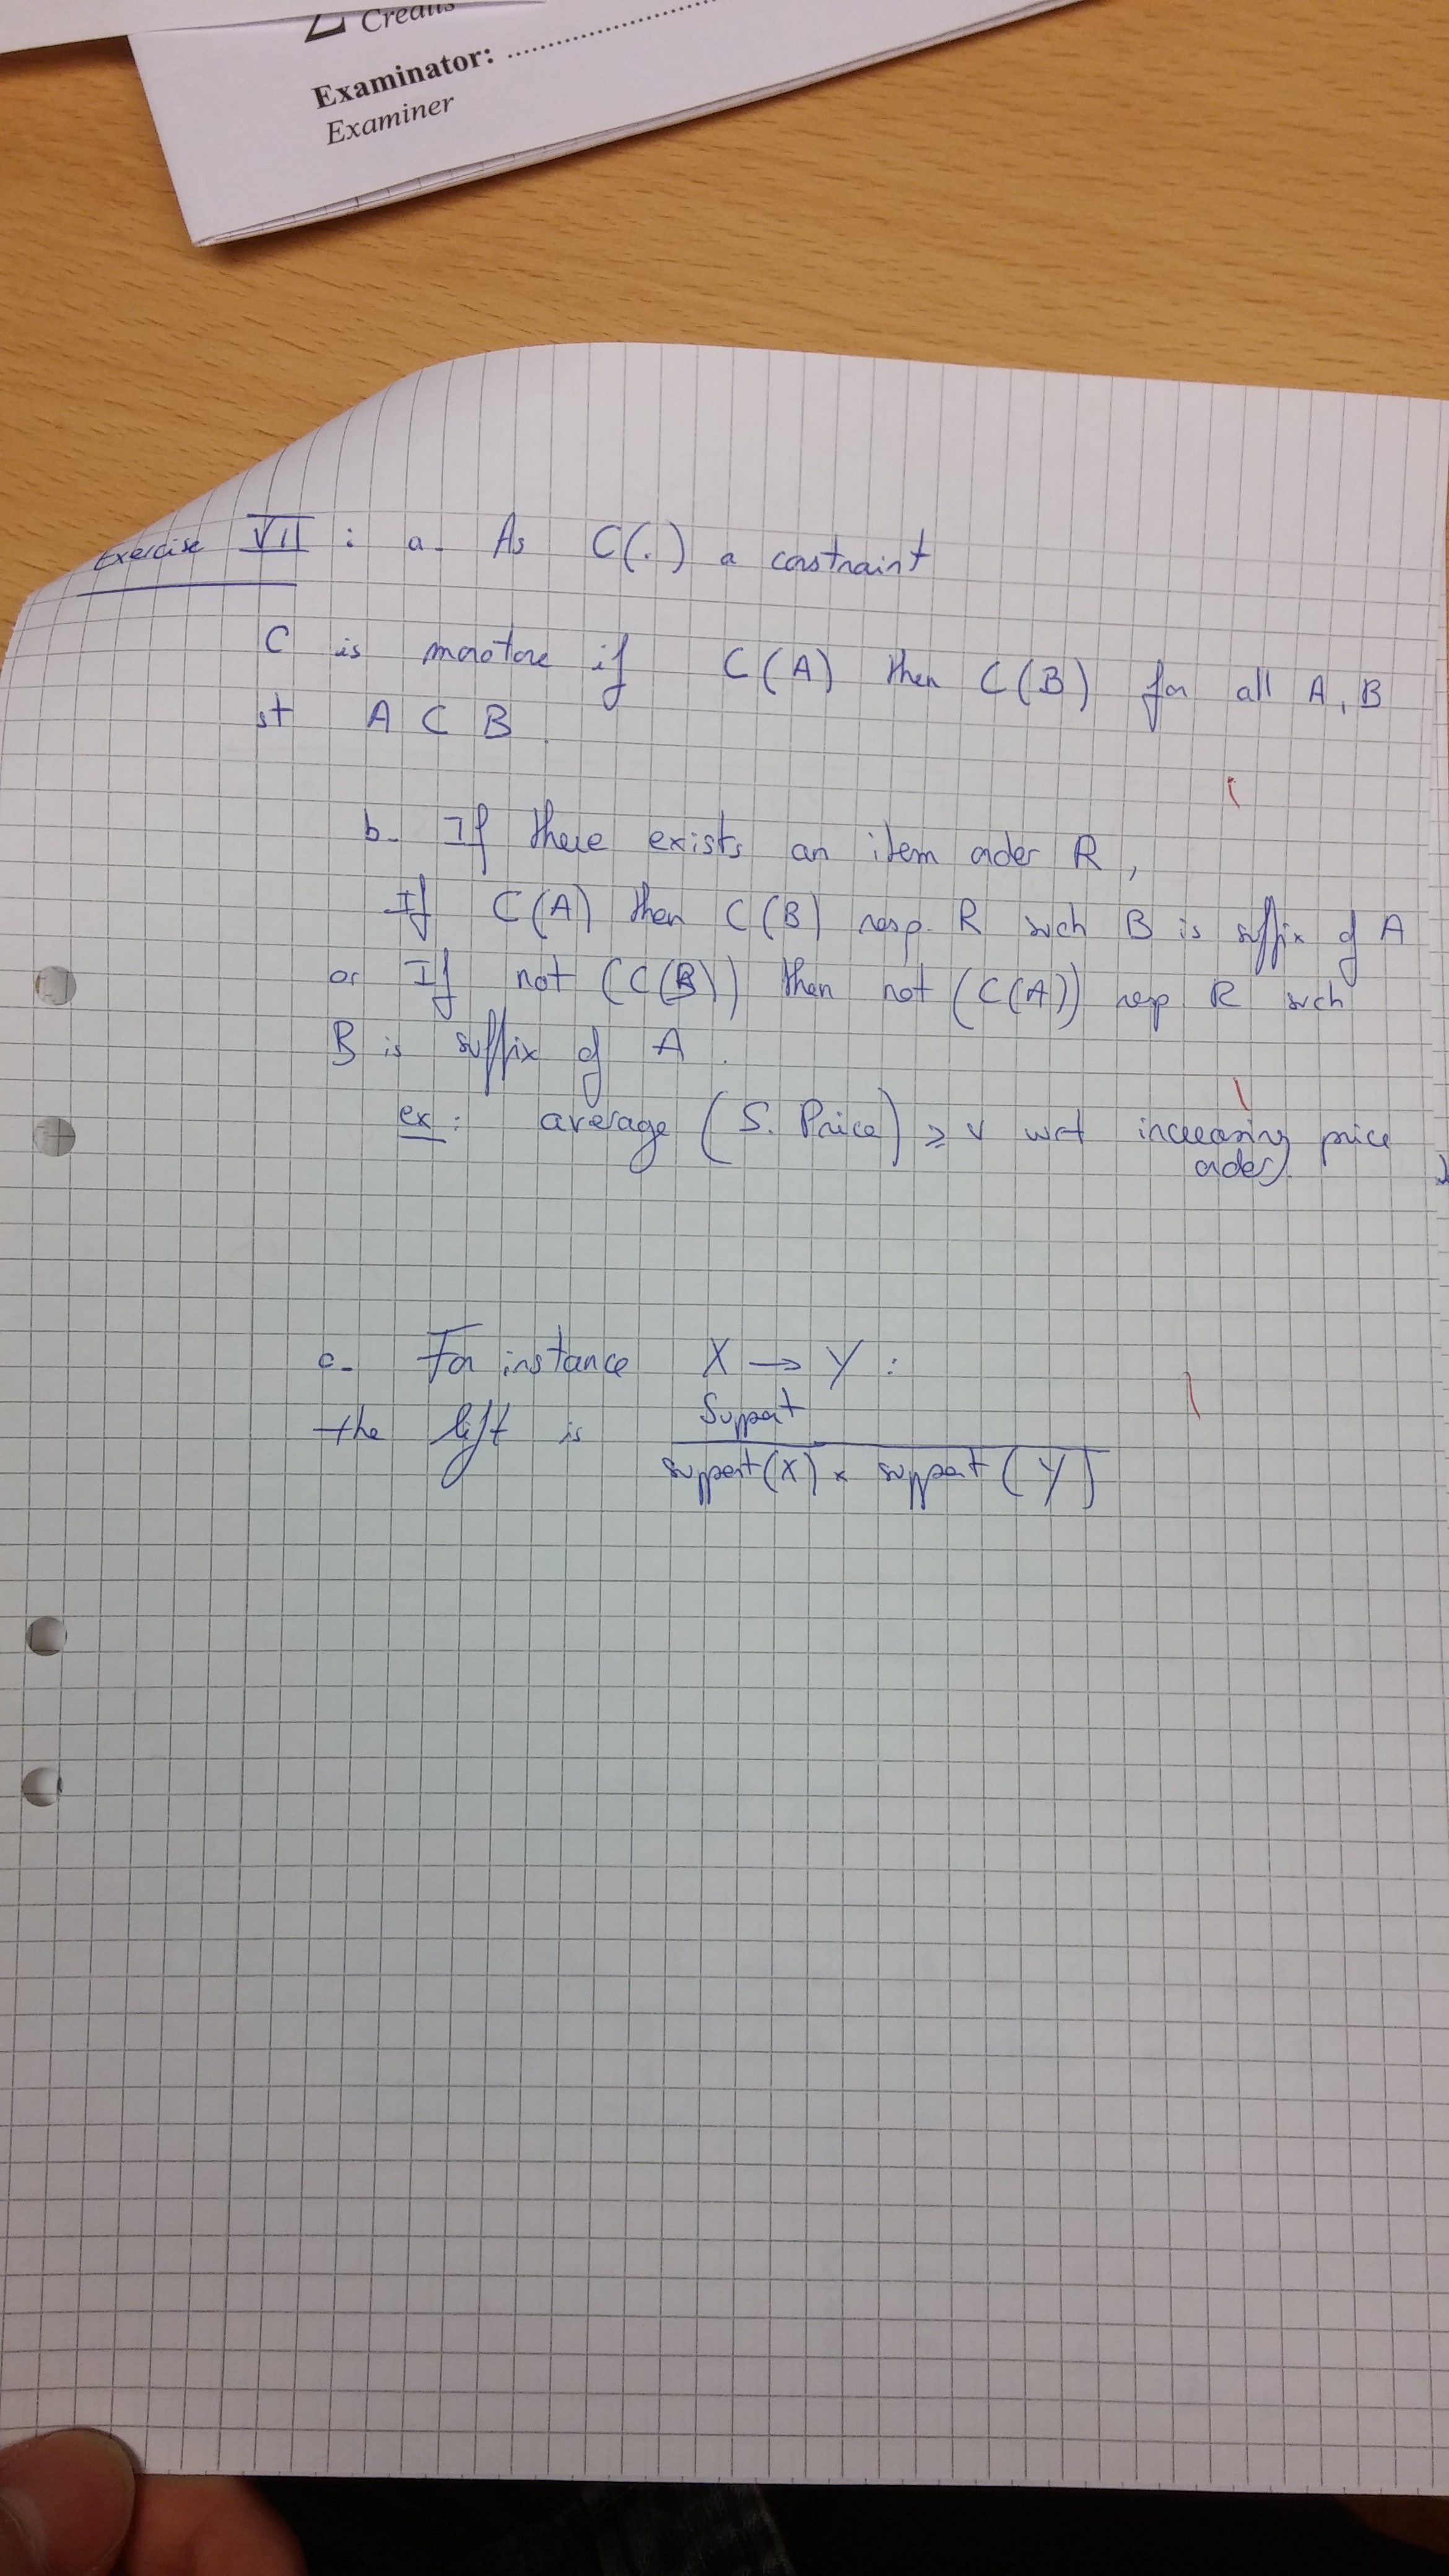 Credits
Examinator: ....................
Examiner
Exercise VII : a- As C(.) a constraint
C is monotone if C(A) then C(B) for all A, B
st A ⊂ B.
b- If there exists an item order R,
If C(A) then C(B) resp. R such B is suffix of A
or If not (C(B)) then not (C(A)) resp R such
B is suffix of A.
ex: average (S. Price) ≥ v wrt increasing price
order).
c- For instance X → Y :
the lift is Support
support(X) × support(Y)